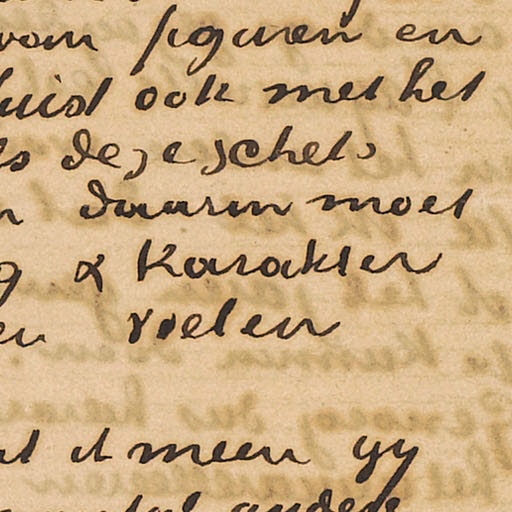 van figuren en
juist ook met het
ls deze schets
n daarin moet
g & Karakter
en voelen
at ik meen gy
andere